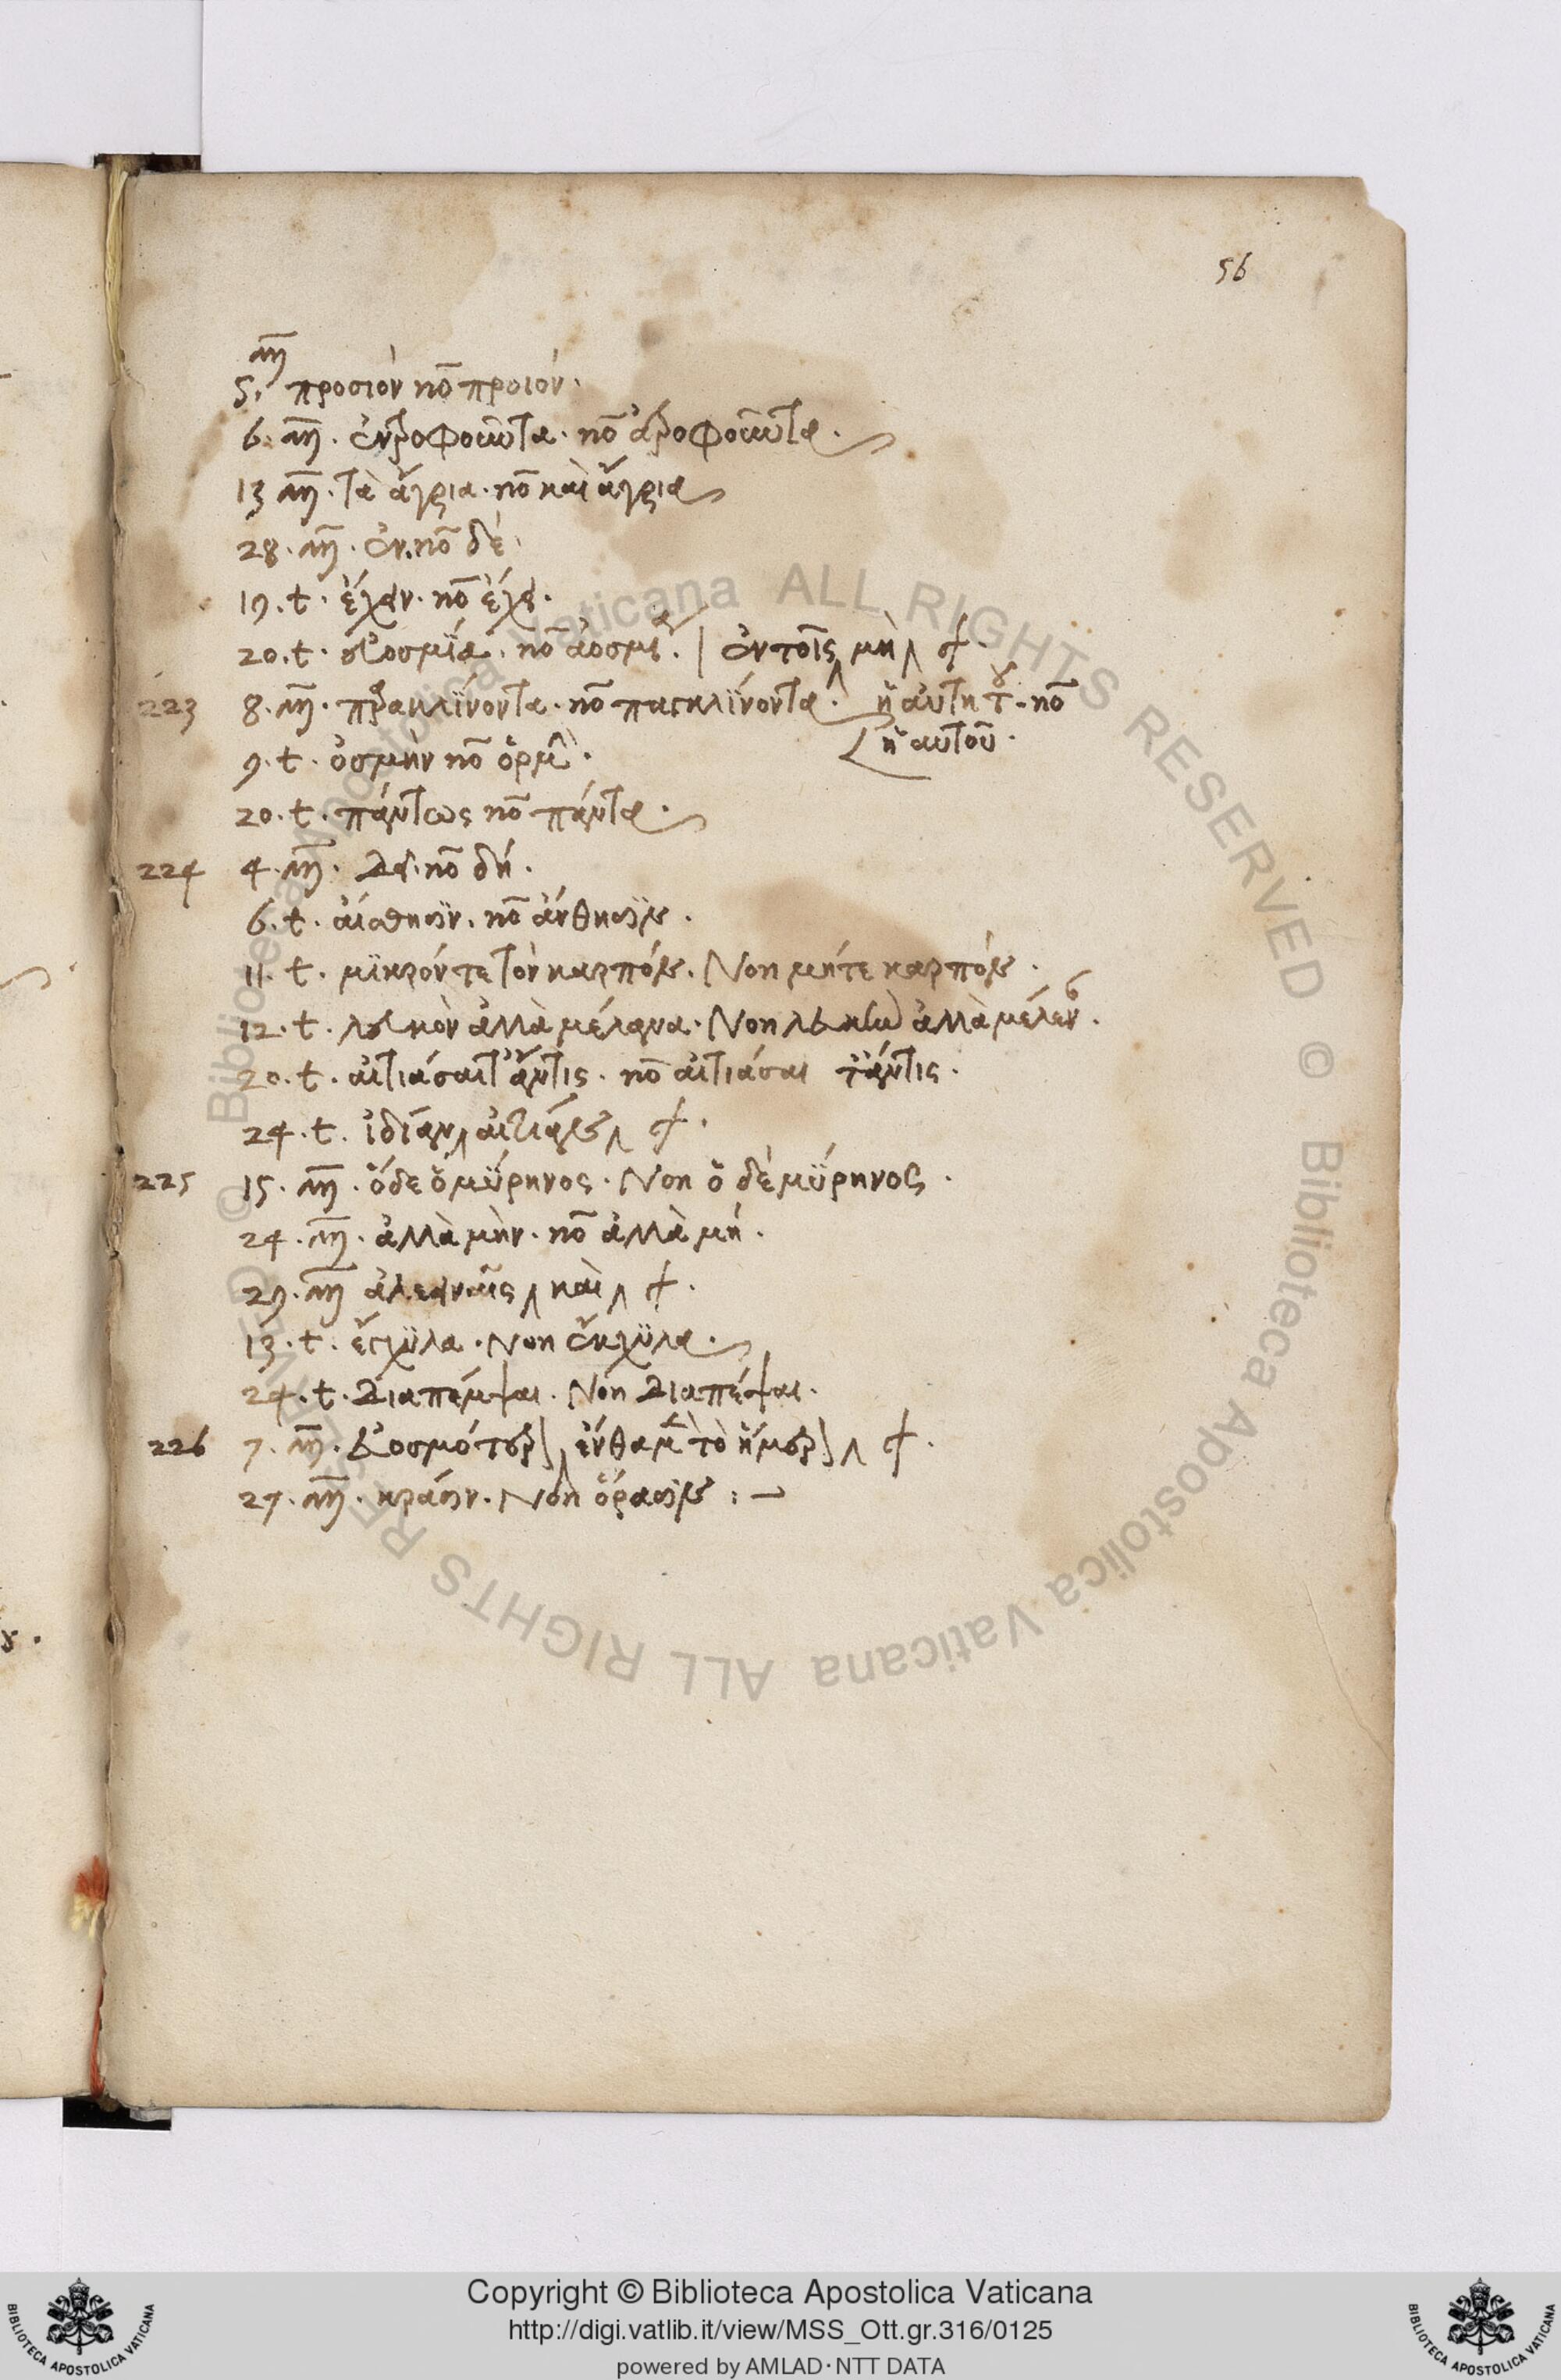 56
5. m̄ προσιὸν nō προιόν.
6. m̄. nō
13 m̄. τὰ ἄγρια. nō καὶ ἄγρια
28. m̄. ἐν. nō δὲ
19. t. nō
20. t. εὐοσμία. nō ἀοσμία. | ἐν τοῖς μὴ
223 8. m̄. nō ἢ αὐτὴ τοῦ. nō
ἢ αὐτοῦ.
9. t. ὀσμὴν nō ὁρμὴν.
20. t. πάντως nō πάντα.
224 4. m̄. διὰ. nō δή.
6. t. αἴσθησιν. nō ἄνθησιν.
11. t. μικρόν τε τὸν καρπόν. Non μήτε καρπόν.
12. t. λευκὸν ἀλλὰ μέλανα. Non λευκὴν ἀλλὰ μέλαν.
20. t. αἰτιάσαιτ' ἄντις. nō αἰτιάσαι τἄντις.
24. t. ἰδίαν αἰτίαν
225 15. m̄. ὅδε ὁ μύρηνος. Non ὁ δὲ μύρηνος.
24. m̄. ἀλλὰ μὴν. nō ἀλλὰ μή.
29. m̄ ἀλεεινοῖς καὶ
13. t. ἔγχυλα. Non ἔκχυλα.
24. t. διαπέμψαι. Non διαπέψαι.
226 7. m̄. εὐοσμότερον ἔνθα μὲν τὸ ἥμερον
27. m̄. κρᾶσιν. Non ὅρασιν :–
Copyright © Biblioteca Apostolica Vaticana
http://digi.vatlib.it/view/MSS_Ott.gr.316/0125
powered by AMLAD · NTT DATA
BIBLIOTECA APOSTOLICA VATICANA
BIBLIOTECA APOSTOLICA VATICANA
© Biblioteca Apostolica Vaticana ALL RIGHTS RESERVED © Biblioteca Apostolica Vaticana ALL RIGHTS RESERVED